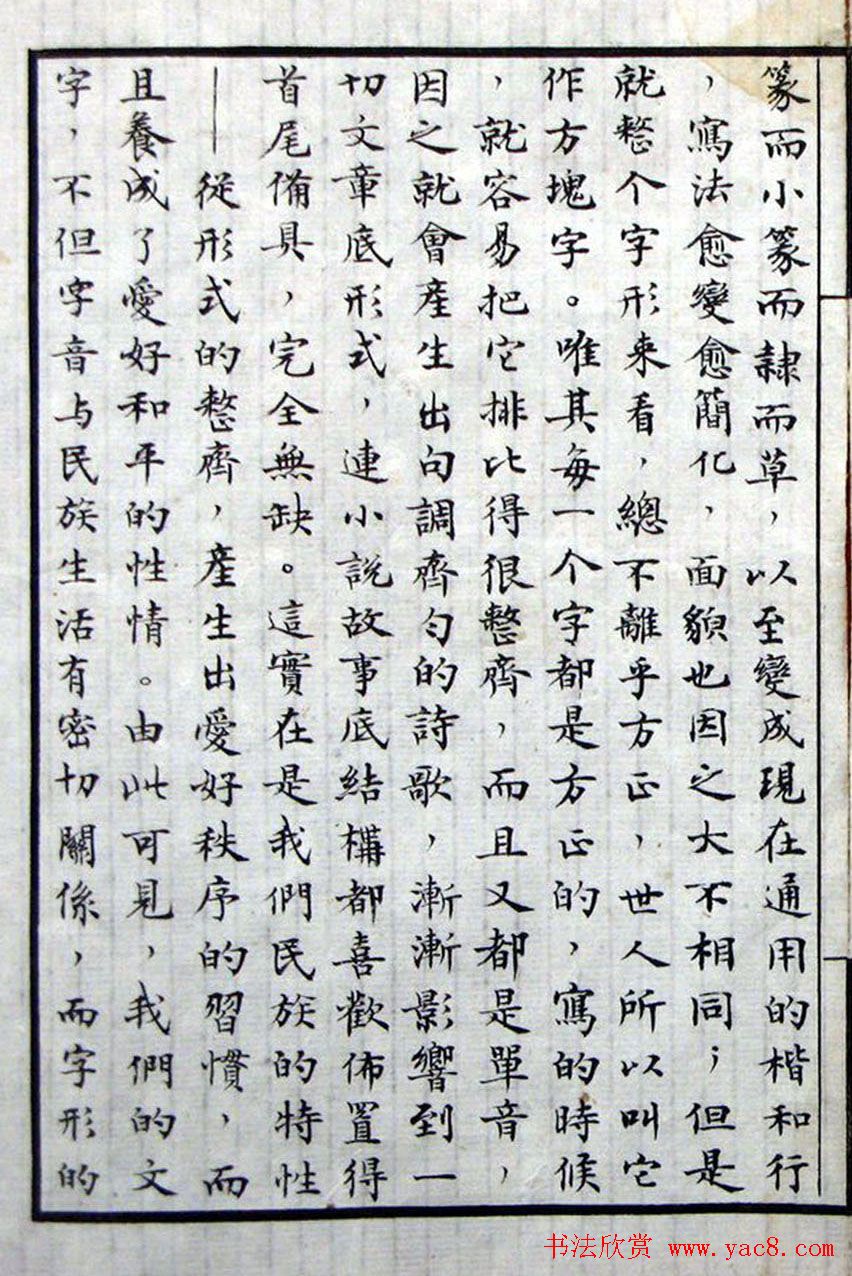 篆而小篆而隸而草，以至變成現在通用的楷和行
，寫法愈變愈簡化，面貌也因之大不相同；但是
就整个字形来看，總不離乎方正，世人所以叫它
作方塊字。唯其每一个字都是方正的，寫的時候
，就容易把它排比得很整齊，而且又都是單音，
因之就會產生出句調齊勻的詩歌，漸漸影響到一
切文章底形式，連小說故事底結構都喜歡佈置得
首尾備具，完全無缺。這實在是我們民族的特性
——從形式的整齊，產生出愛好秩序的習慣，而
且養成了愛好和平的性情。由此可見，我們的文
字，不但字音与民族生活有密切關係，而字形的
书法欣赏 www.yac8.com